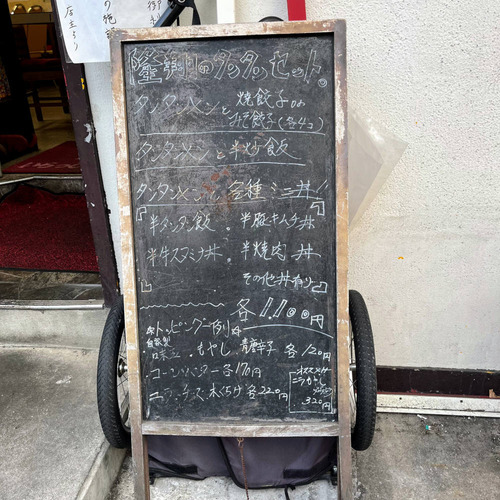 隆新のタンタンセット。
タンタンメンと焼餃子or
みそ餃子(各4コ)
タンタンメンと半炒飯
タンタンメンと各種ミニ丼!
半タンタン飯・半豚キムチ丼
半牛スタミナ丼・半焼肉丼
その他丼有り
各 1.100円
トッピング一例
自家製
味玉・もやし・青唐辛子 各120円
コーン・バター各170円
ニラ・チーズ・木くらげ 各220円
オススメ!!
320円
店主より